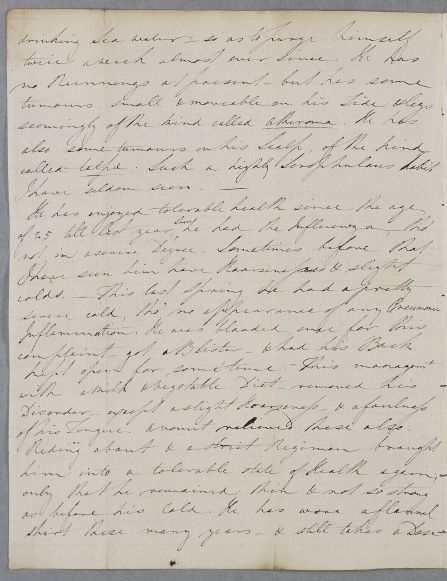 drinking Sea water - so as to purge himself
twice a week almost ever since. He has
no Runnings at present - but has some
tumours small & moveable on his side & legs
seemingly of the kind called atheroma. He has
also some tumours on his Scalp, of the kind
called talpa. Such a highly Scrophulous habit
I have seldom seen. —
He has enjoyed tolerable health since the age
of 25 till last year, he had the Influenza, tho'
not in a severe Degree. Sometimes before that
I have seen him have Hoarseness & slight
colds. — This last Spring he had a pretty
severe cold, tho' no appearance of any Pneumonic
Inflammation. He was blooded, once for this
complaint - got a Blister - & had his Back
kept open for some time. - This management
with a Milk & Vegetable Diet - removed his
Disorder - except a slight Hoarseness - & a foulness
of his Tongue. a vomit relieved these also.
Riding about & a strict Regimen brought
him into a tolerable state of Health again,
only that he remained thin & not so strong
as before his Cold. He has wore a flannel
shirt these many years - & still takes a